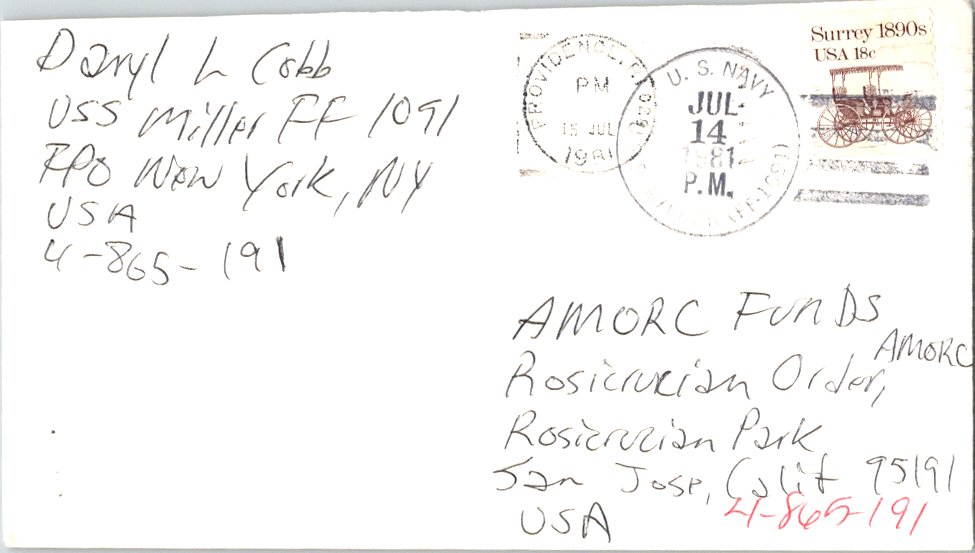 Daryl L Cobb
USS Miller FF 1091
FPO New York, NY
USA
4-865-191
PROVIDENCE, R.I. 029
PM
15 JUL
1981
U.S. NAVY
JUL
14
1981
P.M.
(FF-1091)
Surrey 1890s
USA 18c
AMORC Funds
AMORC
Rosicrucian Order,
Rosicrucian Park
San Jose, Calif 95191
USA
4-865-191